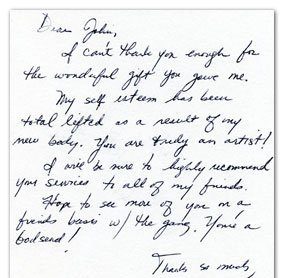 Dear John,
I can't thank you enough for
the wonderful gift you gave me.
My self esteem has been
total lifted as a result of my
new body. You are truly an artist!
I will be sure to highly recommend
your services to all of my friends.
Hope to see more of you on a
friends basis w/ the gang. You're a
Godsend!
Thanks so much,